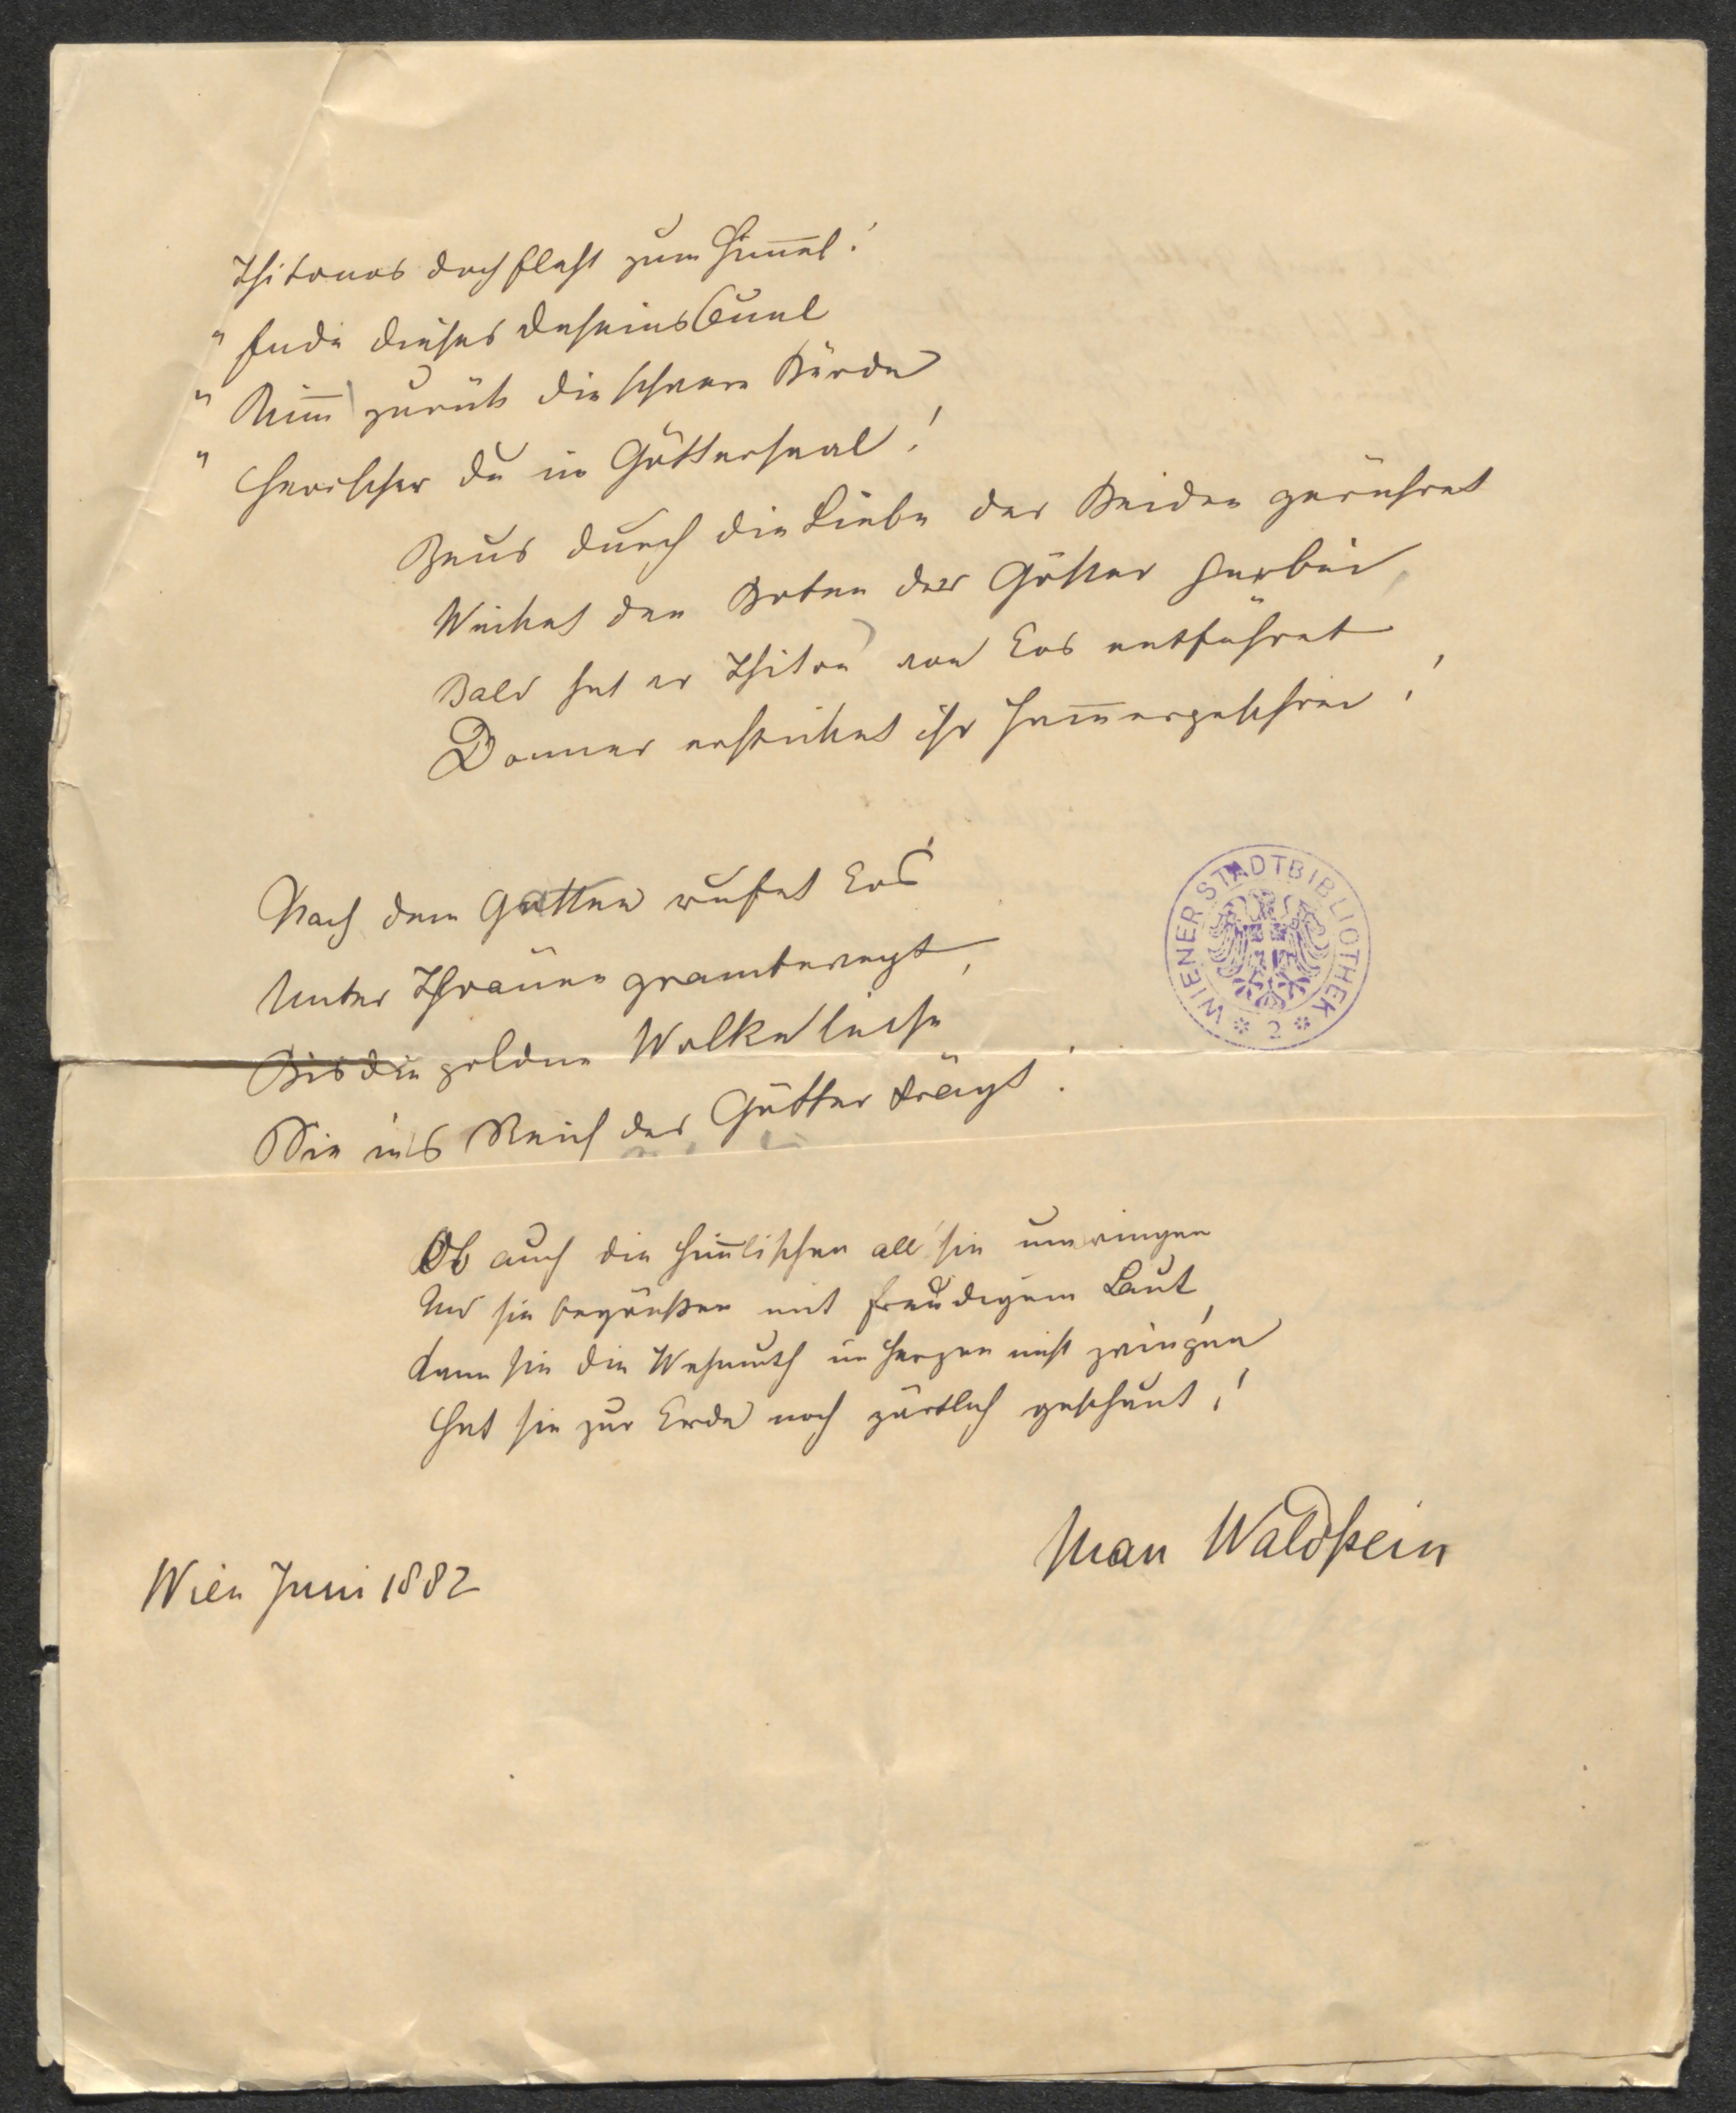 Thitonos doch fleht zum Him̅el!
" Ende dieses Daseins Qual
" Nim̅ zurück die schwere Bürde
" Herrscher du im Göttersaal!
Zeus durch die Liebe der Beiden gerühret
Winket den Boten der Götter herbei,
Bald hat er Thiton von Eos entführet
Donner ersticket ihr Jam̅ergeschrei!
Nach dem Gatten rufet Eos
Unter Thränen grambewegt,
Bis die goldne Wolke leise
Sie in's Reich der Götter trägt.
Ob auch die Him̅lischen all' sie umringen
Und sie begrüßen mit freudigem Laut,
Kann sie die Wehmuth im Herzen nicht zwingen
Hat sie zur Erde noch zärtlich geschaut!
Max Waldstein
Wien Juni 1882
WIENER STADTBIBLIOTHEK
2